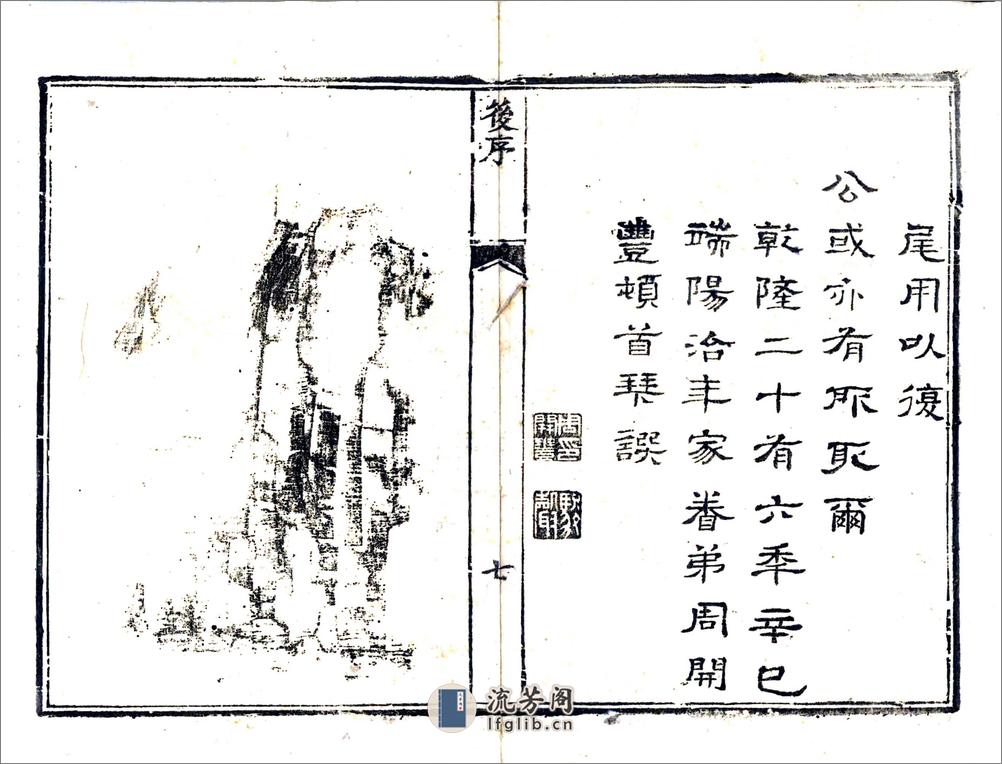 尾用以復
公或亦有所取爾
乾隆二十有六秊辛巳
端陽治年家眷弟周開
豐頓首拜譔
後序
七
流芳阁
lfglib.cn